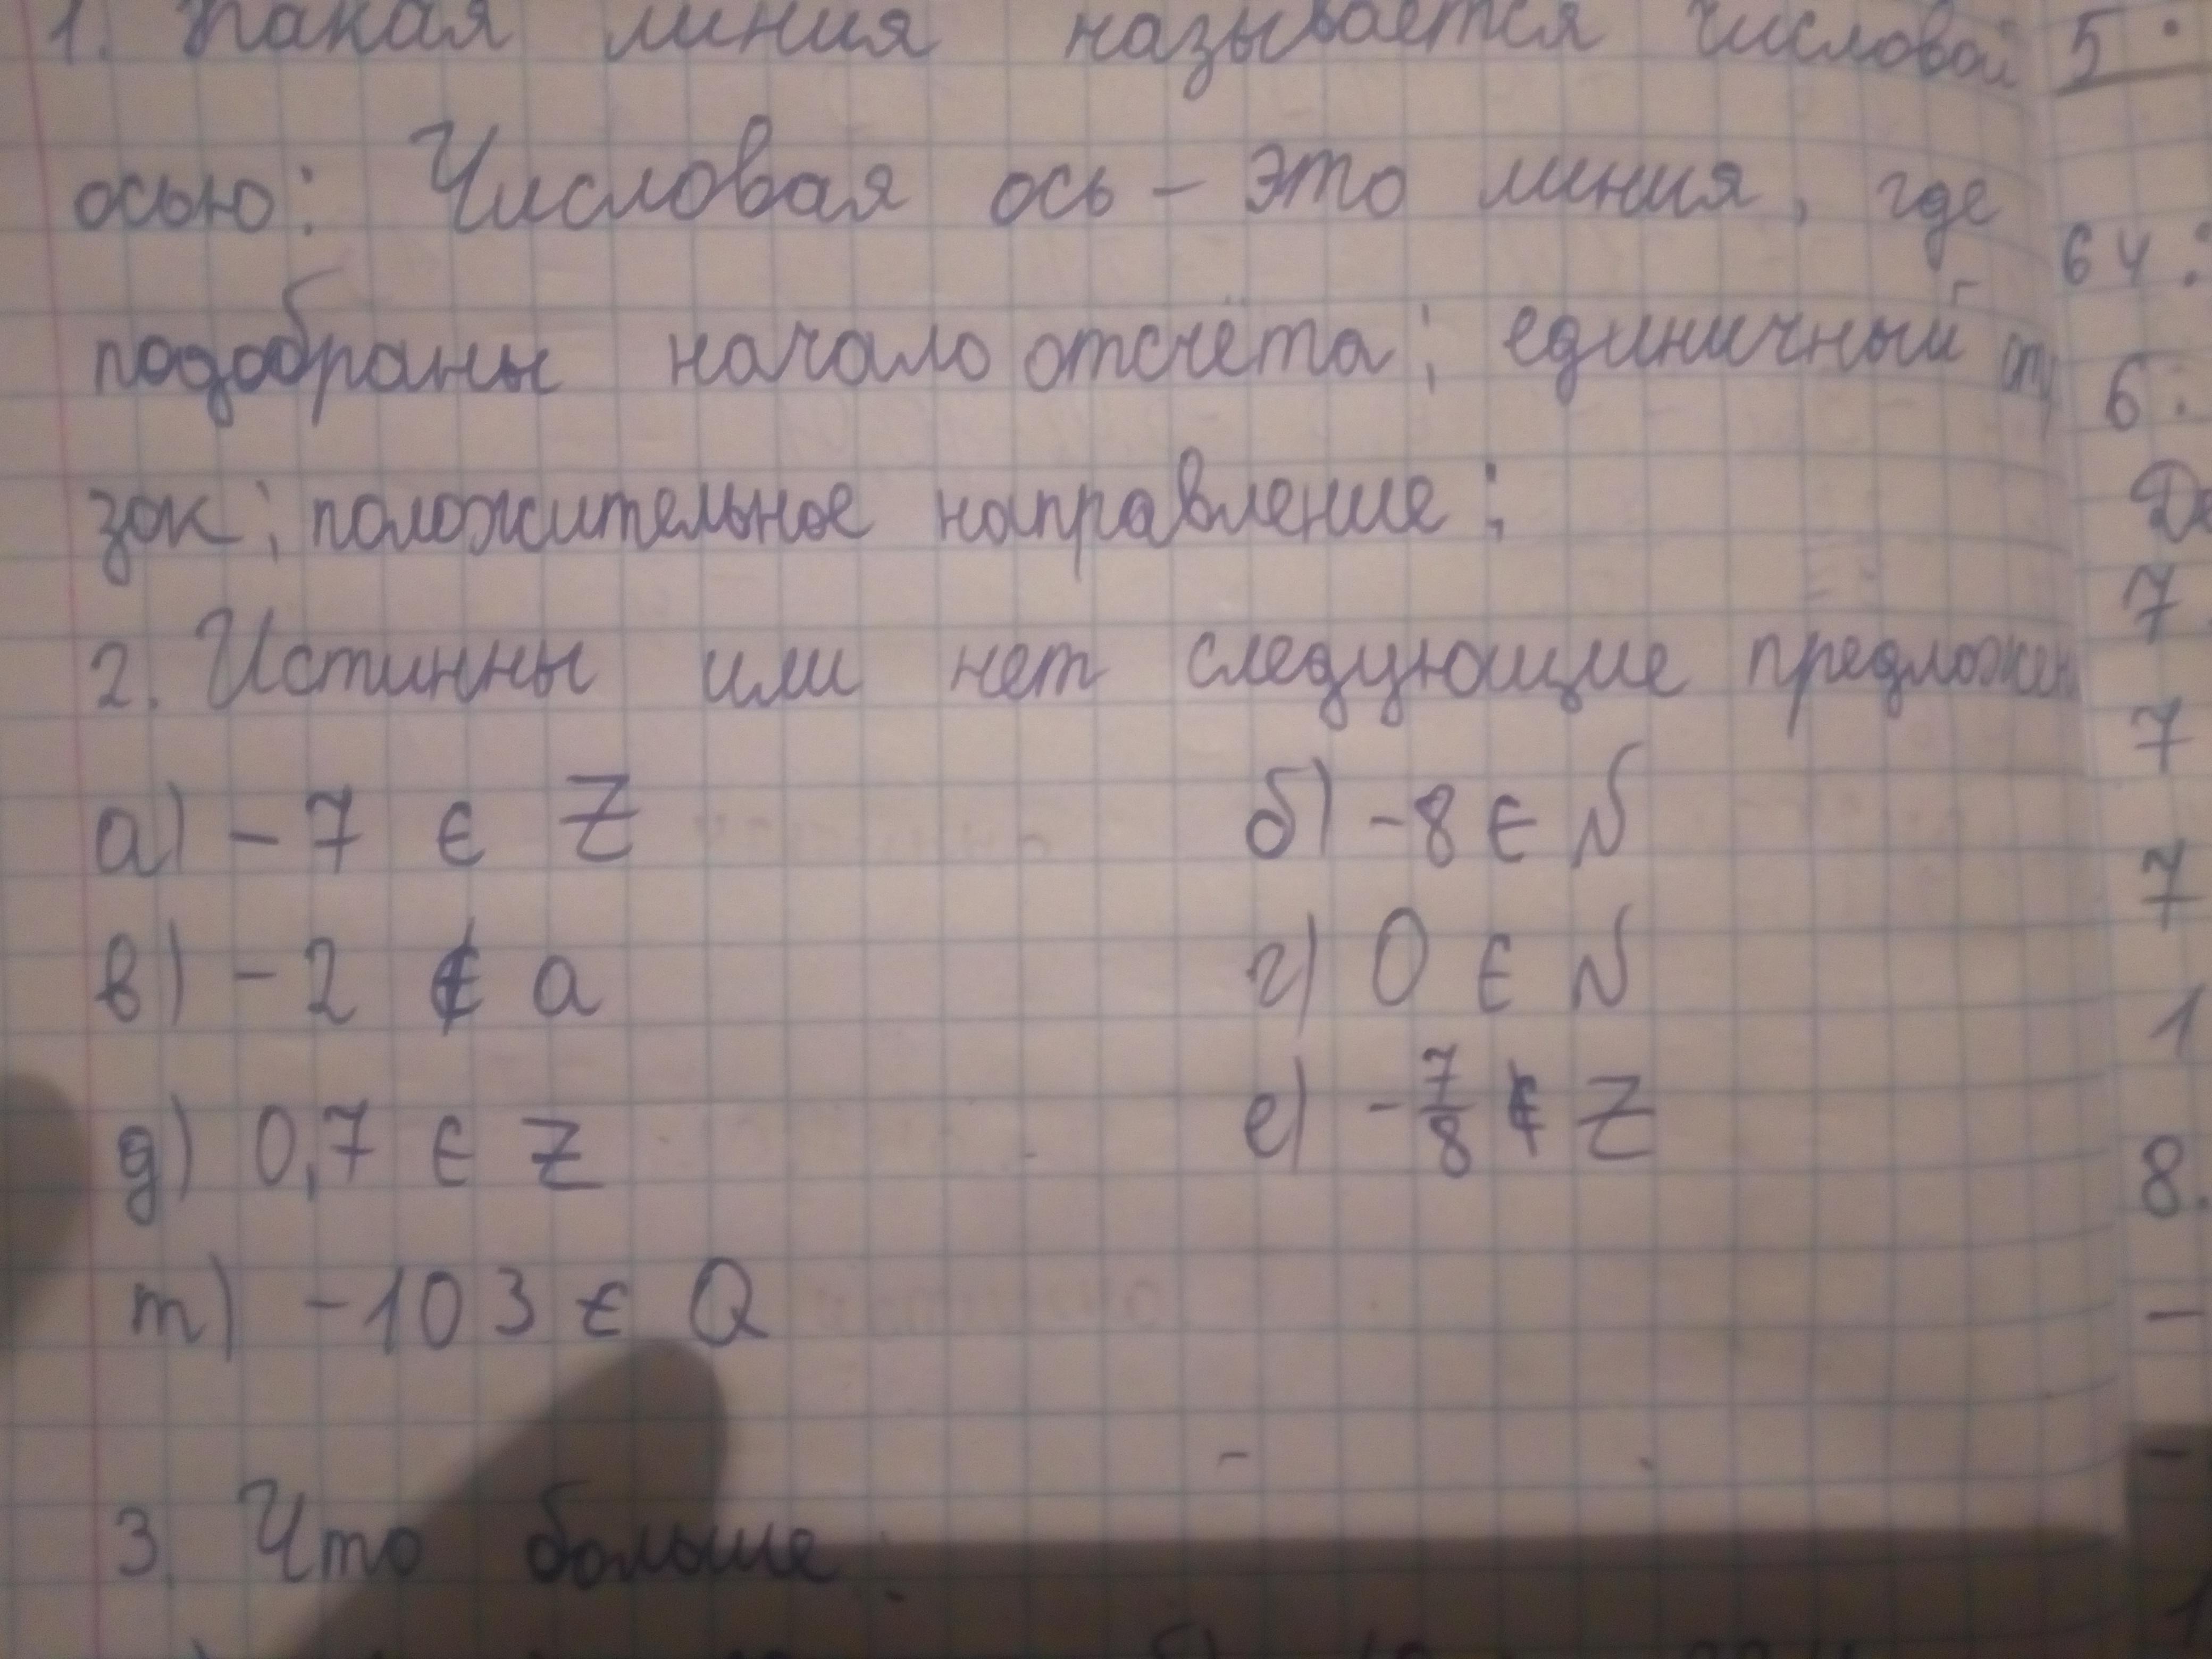 1. Какая линия называется числовой
осью: Числовая ось - это линия, где
подобраны начало отсчёта; единичный от
зок; положительное направление;
2. Истинны или нет следующие предложен
а) -7 ∈ Z б) -8 ∈ N
в) -2 ∉ a г) 0 ∈ N
д) 0,7 ∈ Z е) -7/8 ∉ Z
т) -103 ∈ Q
3. Что больше:
5.
64:
6.
7
7
7
1
8.